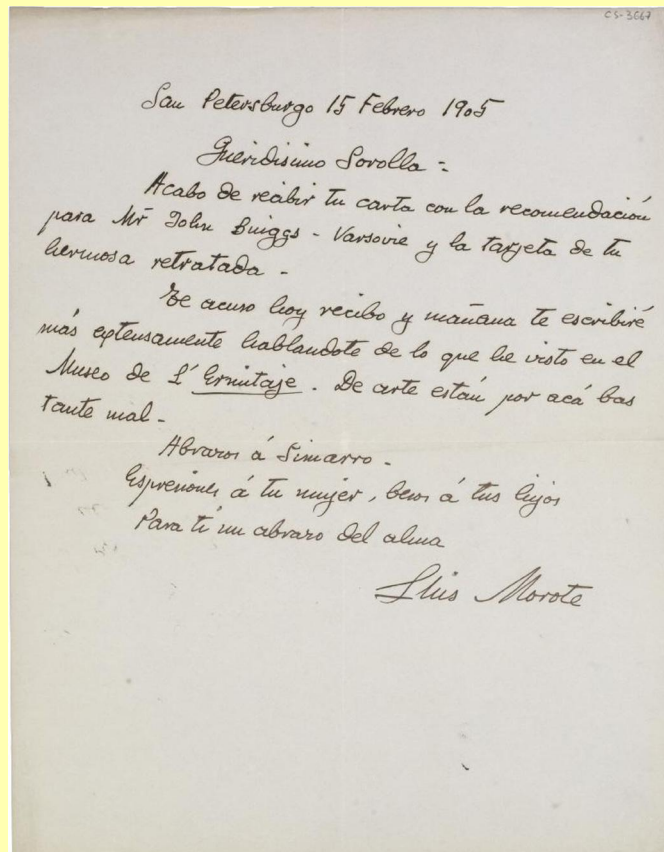 CS-3667
San Petersburgo 15 Febrero 1905
Queridisimo Sorolla =
Acabo de recibir tu carta con la recomendación
para Mr John Briggs - Varsovie y la tarjeta de tu
hermosa retratada -
Te acuso hoy recibo y mañana te escribiré
más extensamente hablandote de lo que he visto en el
Museo de L' Ermitaje. De arte están por acá bas
tante mal -
Abrazos á Simarro -
Expresiones á tu mujer, besos á tus hijos
Para tí un abrazo del alma
Lluis Morote